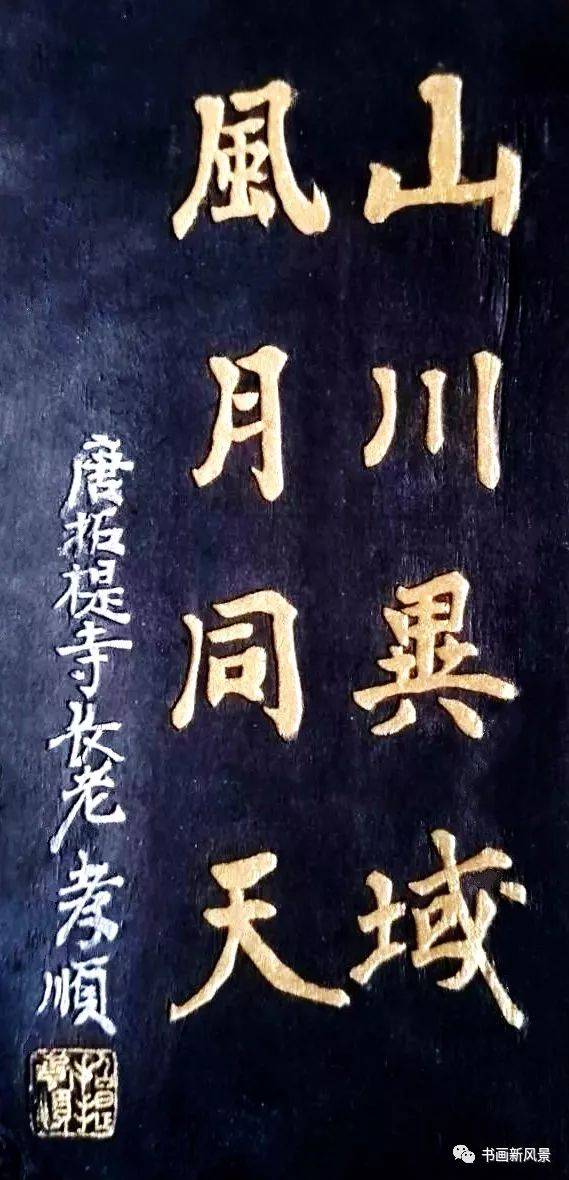 山川異域
風月同天
唐招提寺长老 孝順
招提
孝順
书画新风景